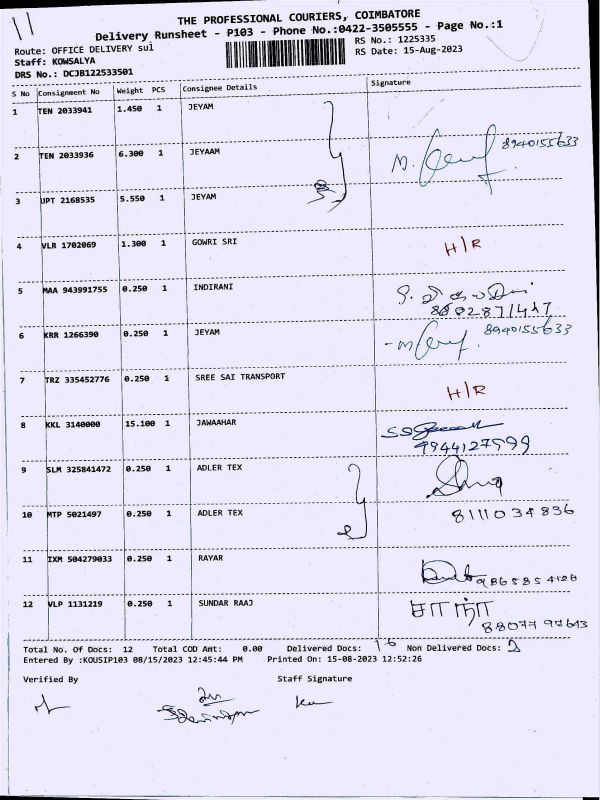 THE PROFESSIONAL COURIERS, COIMBATORE
Delivery Runsheet - P103 - Phone No.:0422-3505555 - Page No.:1
Route: OFFICE DELIVERY sul RS No.: 1225335
Staff: KOWSALYA RS Date: 15-Aug-2023
DRS No.: DCJB122533501
S No Consignment No Weight PCS Consignee Details Signature
1 TEN 2033941 1.450 1 JEYAM
2 TEN 2033936 6.300 1 JEYAAM 8940155633
3 UPT 2168535 5.550 1 JEYAM
4 VLR 1702069 1.300 1 GOWRI SRI H/R
5 MAA 943991755 0.250 1 INDIRANI
6 KRR 1266390 0.250 1 JEYAM 8940155633
7 TRZ 335452776 0.250 1 SREE SAI TRANSPORT H/R
8 KKL 3140000 15.100 1 JAWAAHAR
9944127599
9 SLM 325841472 0.250 1 ADLER TEX
10 MTP 5021497 0.250 1 ADLER TEX 8111034836
11 IXM 504279033 0.250 1 RAYAR
12 VLP 1131219 0.250 1 SUNDAR RAAJ சாந்தா
Total No. Of Docs: 12 Total COD Amt: 0.00 Delivered Docs: Non Delivered Docs: 2
Entered By :KOUSIP103 08/15/2023 12:45:44 PM Printed On: 15-08-2023 12:52:26
Verified By Staff Signature